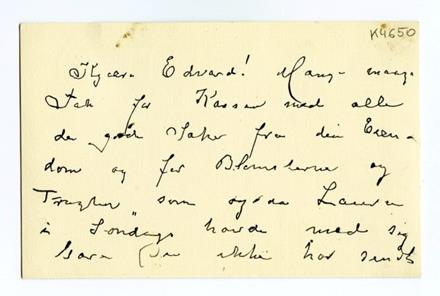 K4650
Kjære Edvard! Mange mange
Tak for Kassen med alle
de gode Saker fra din Eien-
dom og for Blomsterne og
Frugten som også Lauren
i Søndags havde med sig
bare du ikke har sendt